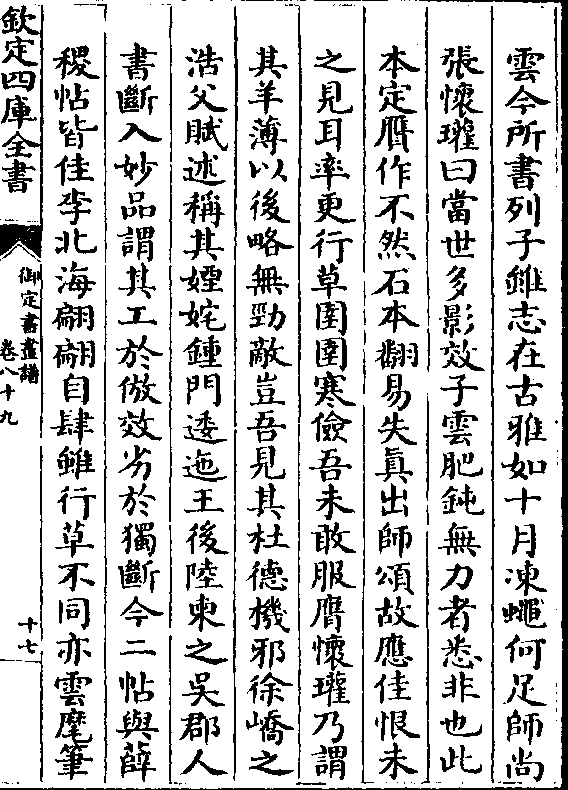 雲今所書列子雖志在古雅如十月凍蠅何足師尚
張懷瓘曰當世多影效子雲肥鈍無力者悉非也此
本定贋作不然石本翻易失真出師頌故應佳恨未
之見耳率更行草圉圉寒儉吾未敢服膺懷瓘乃謂
其羊薄以後略無勁敵豈吾見其杜德機邪徐嶠之
浩父賦述稱其婬姹鍾門逶迤王後陸柬之吳郡人
書斷入妙品謂其工於倣效劣於獨斷今二帖與薛
稷帖皆佳李北海翩翩自肆雖行草不同亦雲麾筆
欽定四庫全書
御定書畫譜
卷八十九
十七